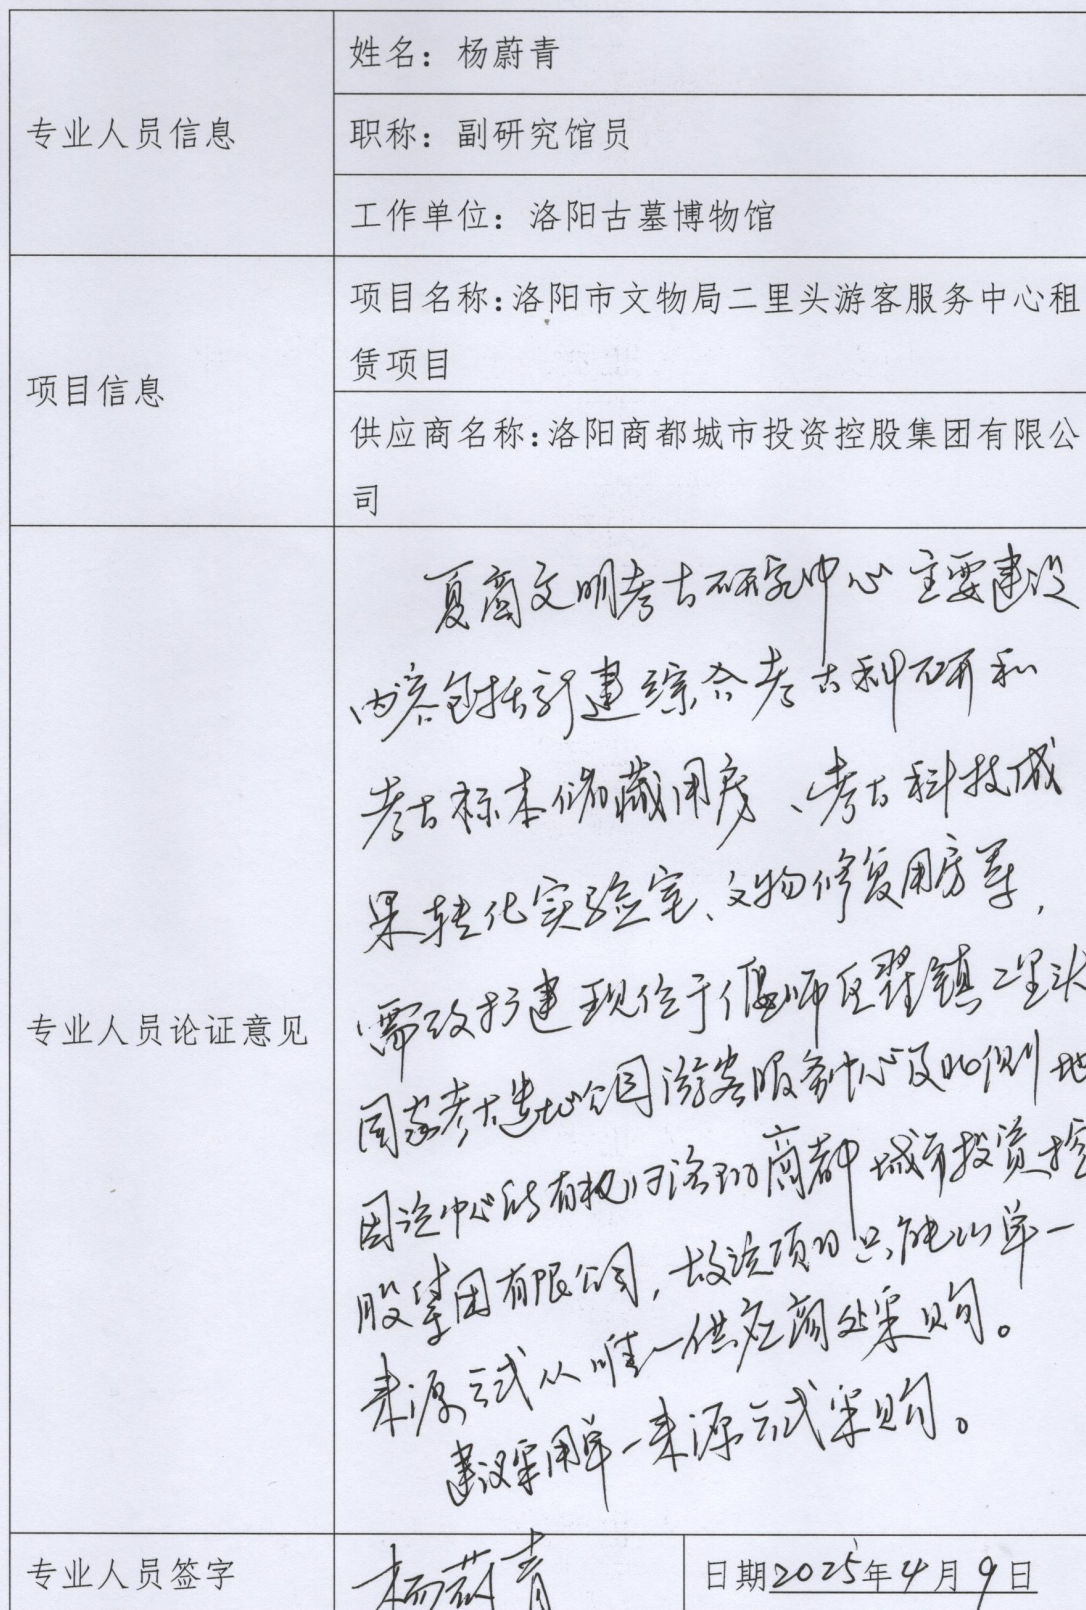 专业人员信息
姓名：杨蔚青
职称：副研究馆员
工作单位：洛阳古墓博物馆
项目信息
项目名称:洛阳市文物局二里头游客服务中心租
赁项目
供应商名称:洛阳商都城市投资控股集团有限公
司
专业人员论证意见
夏商文明考古研究中心主要建设
内容包括新建综合考古科研和
考古标本储藏用房、考古科技成
果转化实验室、文物修复用房等，
需改扩建现位于偃师区翟镇二里头
国家考古遗址公园游客服务中心及北侧地
因该中心所有权归洛阳商都城市投资控
股集团有限公司，故该项目只能以单一
来源方式从唯一供应商处采购。
建议采用单一来源方式采购。
专业人员签字
杨蔚青
日期2025年4月9日